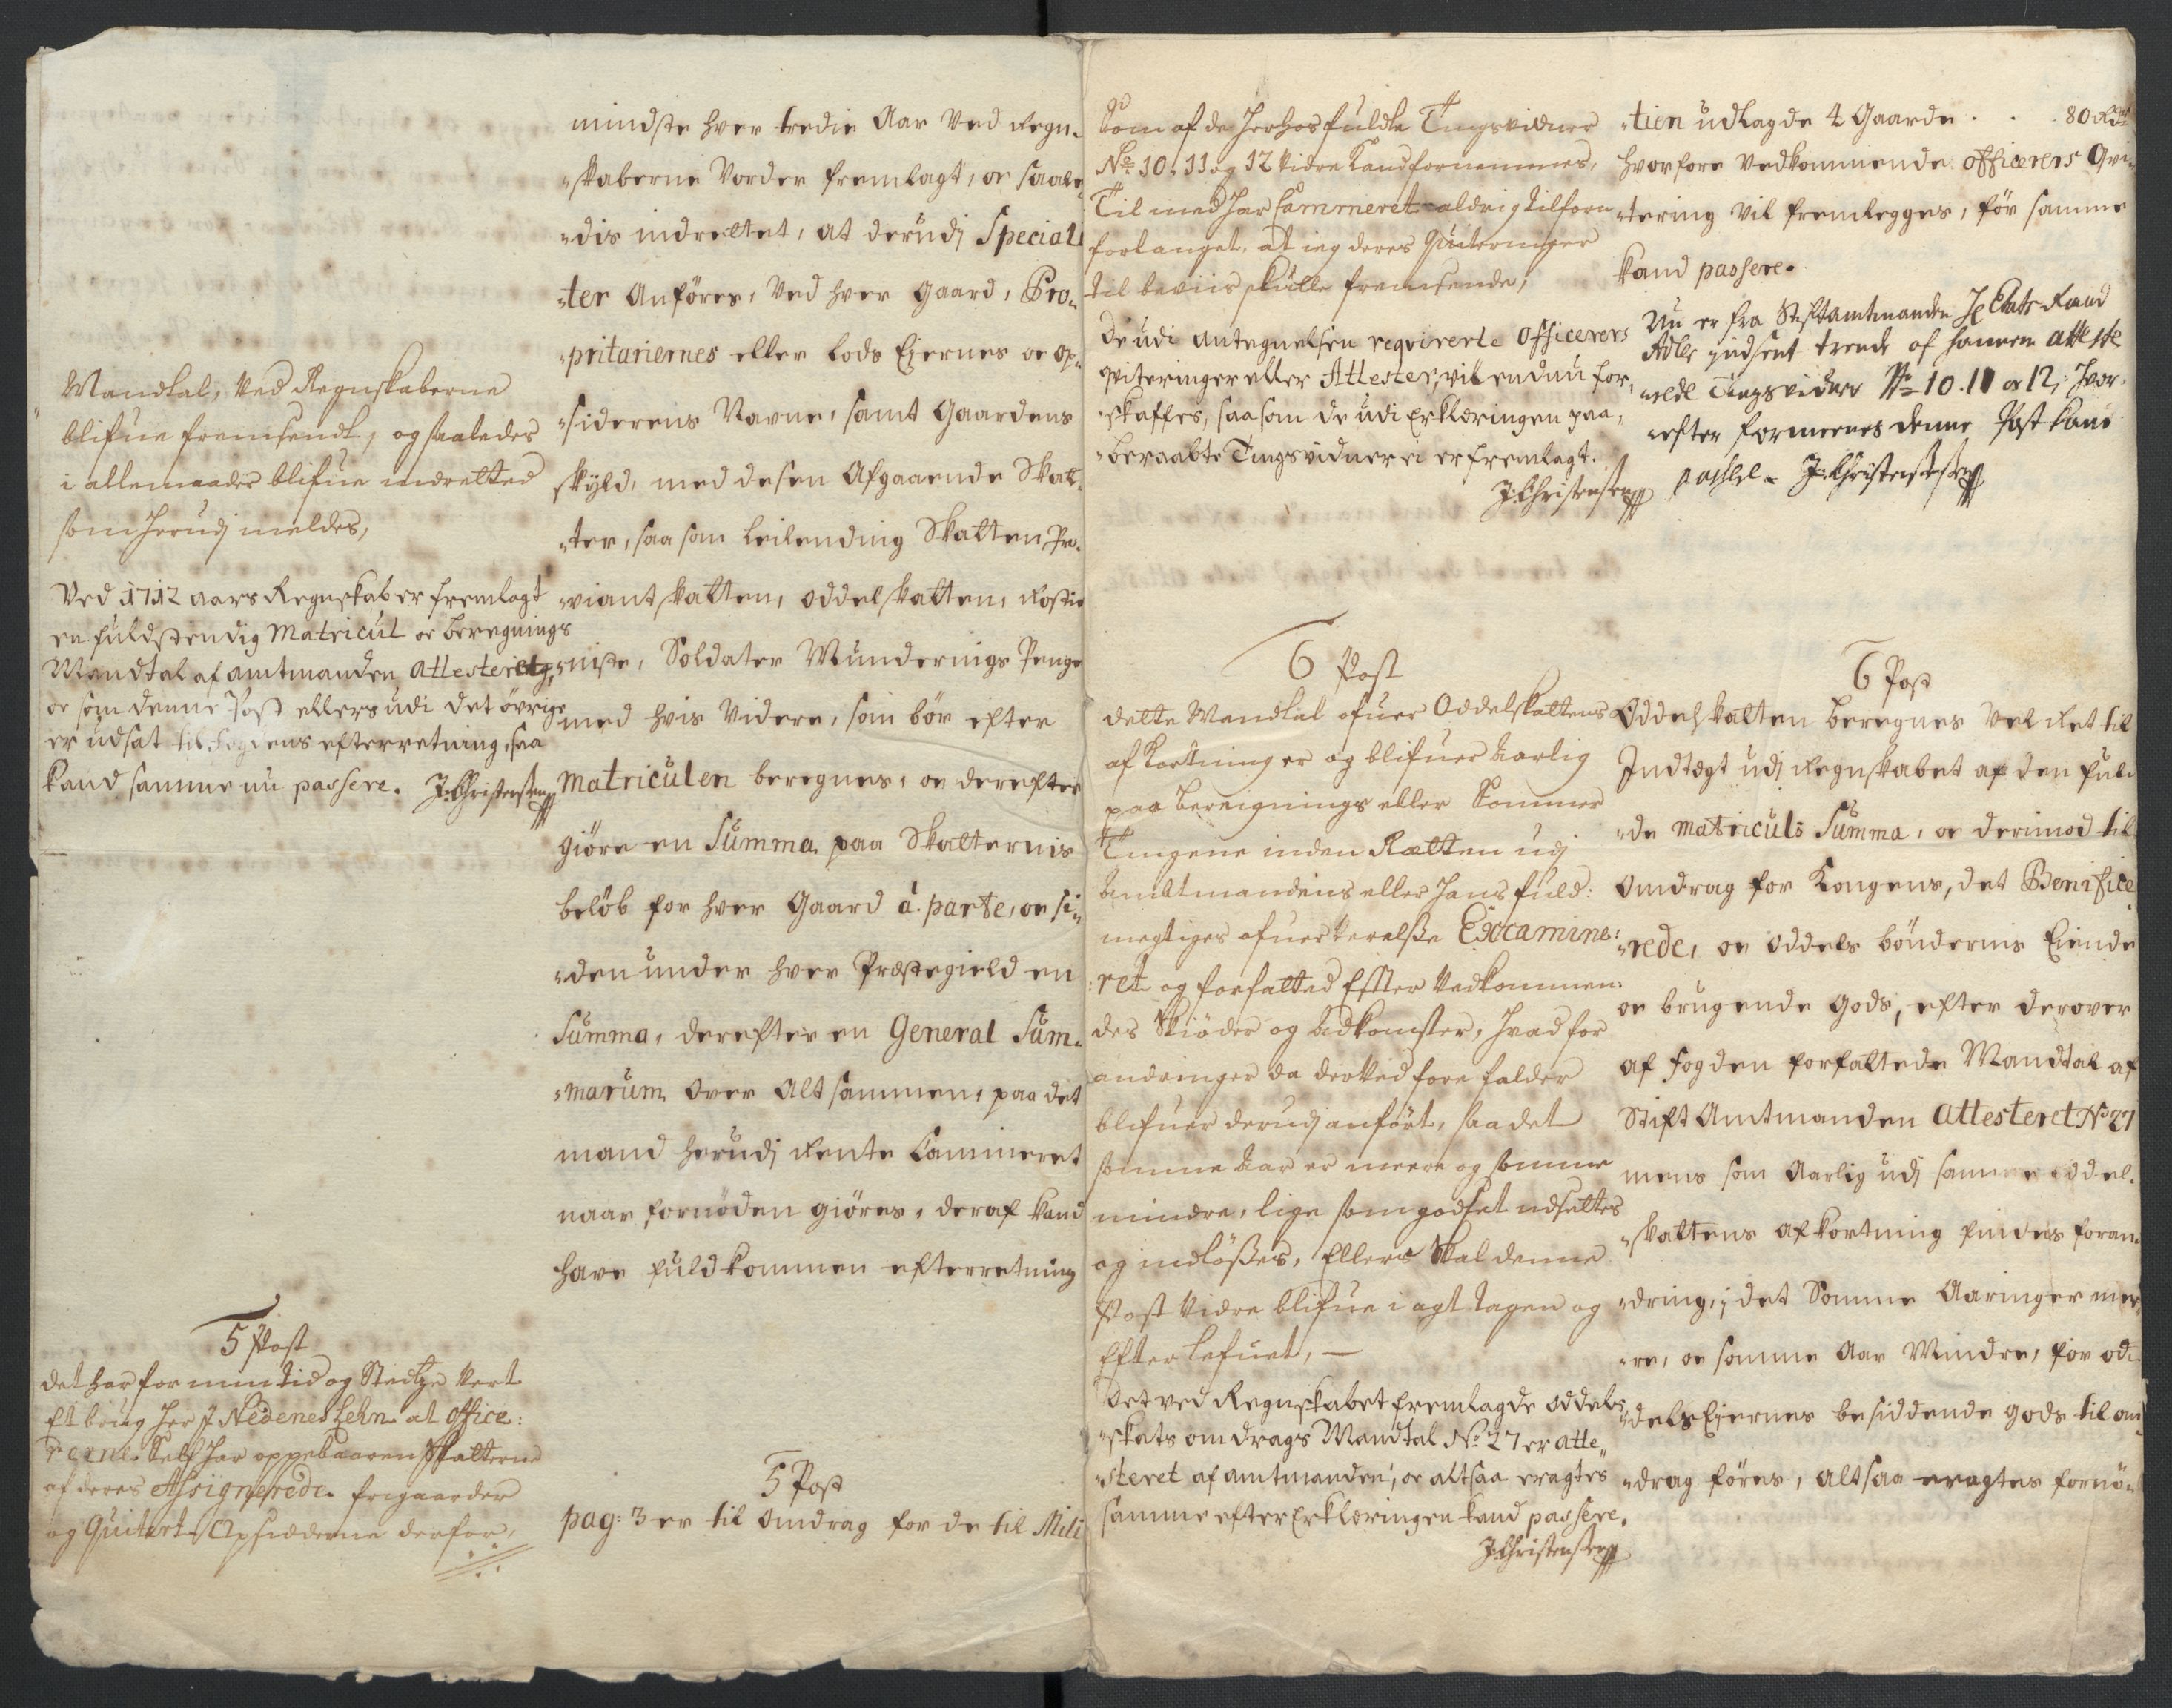 Mandtal, Ved Regnskaberne
blifue fremsendt, og saaledes
i allemaader blifue indretted
som herudj meldes,
Ved 1712 aars Regnskab er fremlagt
en fuldstendig Matricul oc beregnings
Mandtal af amtmanden attesteret,
oc som denne Post ellers udi det övrige
er udsat til fogdens efterretning, saa
kand samme nu passere. J. Christensen
5 Post
det har for min tid og Stedtze vert
Et brug her J Nedenes Lehn at office:
rerne Self har oppebaaren Skatterne
af deres Assignerede frigaarder
og Quitert Opsidderne derfor,
mindste hver tredie Aar Ved Regn-
skaberne Vorder fremlagt, oc saale-
dis indrettet, at derudj Speciali-
ter Anföres, Ved hver Gaard, Pro-
pritariernes eller Lods Ejernes oc op-
siderens Navne, samt Gaardens
skyld, med desen Afgaaende Skat-
ter, saa som Leilending Skatten, Pro-
viant skatten, oddel skatten, Rostie-
niste, Soldater Mundernigs Penge
med hvis Videre, som bör efter
Matriculen beregnes, oc derefter
giöre en Summa paa Skatternis
belöb for hver Gaard à parte, oc si-
den under hver Præstegield en
Summa, derefter en General Sum-
marum Over Alt sammen, paa det
mand herudj Rente Cammeret
naar fornöden giöres, deraf kand
have fuldkommen efterretning
5 Post
pag: 3 er til Omdrag for de til Mili
Som af de herhos fuldte Tingsvidner
No 10, 11 og 12 vidre Kand fornemmes,
Til med har Cammeret aldrig tilforn
forlanget, at ieg deres Quiteringer
til beviis skulle fremsende,
De udi antegnelsen reqvirerte Officerers
qviteringer eller Attester, vil endnu for-
skaffes, saasom de udi Erklæringen paa-
beraabte Tingsvidner ei er fremlagt.
J. Christensen
6 Post
dette Mandtal ofuer Oddelskattens
af Kortning er og blifuer Aarlig
paa bereignings eller Sommer
Tingene inden Rætten udj
Amtmandens eller hans fuld:
megtiges ofuerværelsse Examine:
ret og forfatted Effter Vedkommen:
des Skiöder og Adkomster, hvad for
andringer da derved fore falder
blifuer derudj anfört, saa det
somme Aar er meere og somme
mindre, lige som godset udsettes
og indlösses, Ellers Skal denne
Post vidre blifue i agt tagen og
Efter lefuet, —
Det ved Regnskabet fremlagde oddels
skats omdrags Mandtal No. 27 er atte-
steret af amtmanden, oc altsaa eragtes
samme efter Erklæringen kand passere.
J. Christensen
tien udlagde 4 Gaarde . . . 80 Rdr
hvorfore Vedkommende officerers Qvi-
tering vil fremlegges, för samme
kand passere.
Nu er fra Stiftamtmanden Etats Raad
Adler indsent trende af hannem atteste
rede Tingsvidner No 10. 11 oc 12, hvor-
efter formeenes denne Post kand
passere - J. Christensen
6 Post
Oddelskatten beregnes Vel Ret til
Indtegt udj Regnskabet af den ful-
de matriculs Summa, oc derimod til
omdrag for Kongens, det Benifice-
rede, oc Oddels böndernis Eiende
oc brugende Gods, efter derover
af fogden forfattede Mandtal af
Stift Amtmanden attesteret No 27
mens som Aarlig udj samme oddel-
skattens afkortning findes foran-
dring, i det Somme Aaringer mee-
re, oc somme Aar Mindre, for od-
dels Ejernes besiddende gods til om-
drag föres, altsaa eragtes fornö-